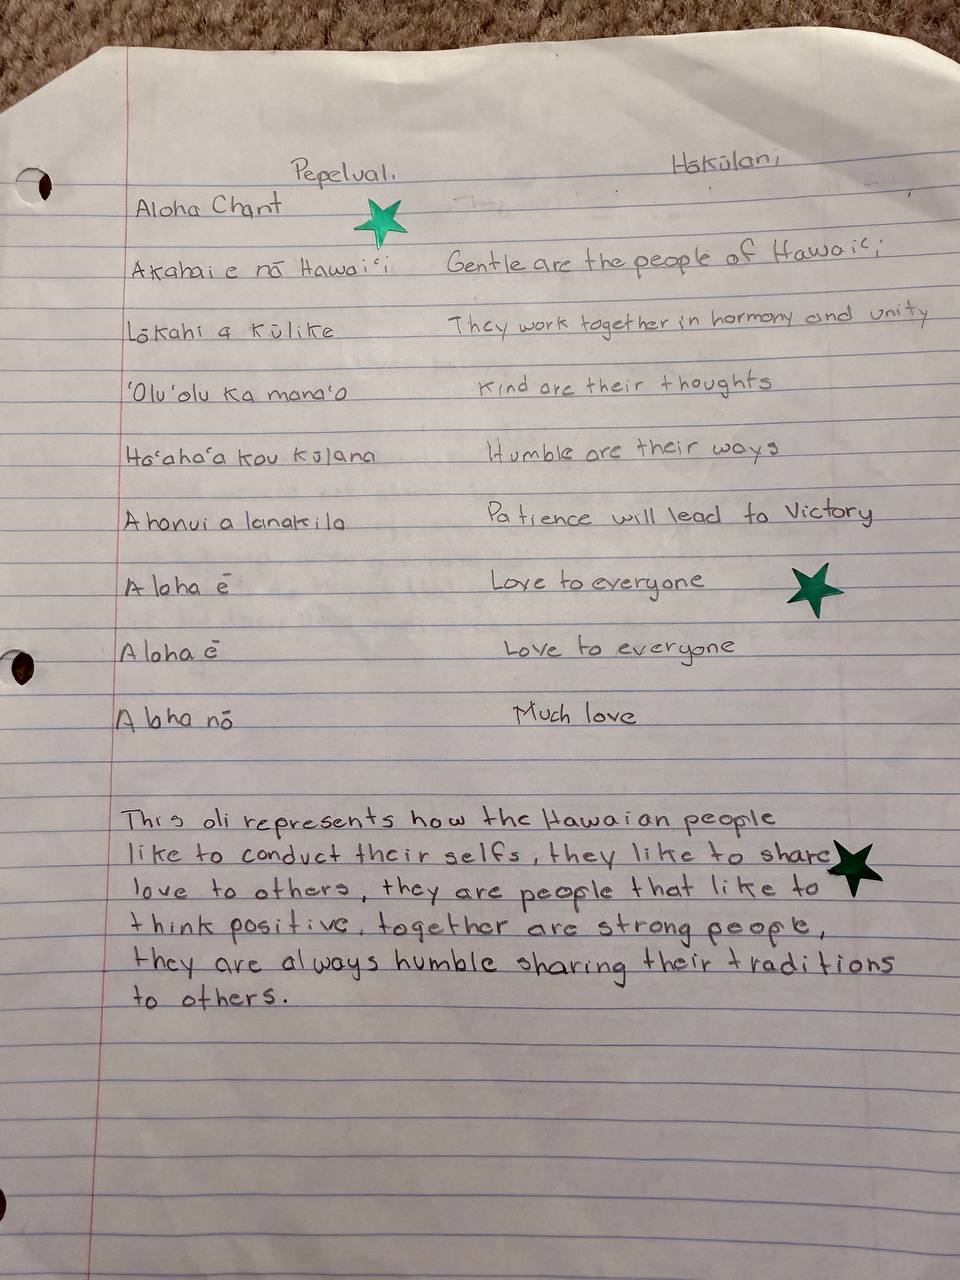 Pepeluali Hōkūlani
Aloha Chant
Akahai e nā Hawaiʻi Gentle are the people of Hawaiʻi
Lōkahi a Kūlike They work together in harmony and unity
ʻOluʻolu Ka manaʻo Kind are their thoughts
Haʻahaʻa kou Kūlana Humble are their ways
Ahonui a lanakila Patience will lead to Victory
Aloha ē Love to everyone
Aloha ē Love to everyone
Aloha nō Much love
This oli represents how the Hawaian people
like to conduct their selfs, they like to share
love to others, they are people that like to
think positive, together are strong people,
they are always humble sharing their traditions
to others.